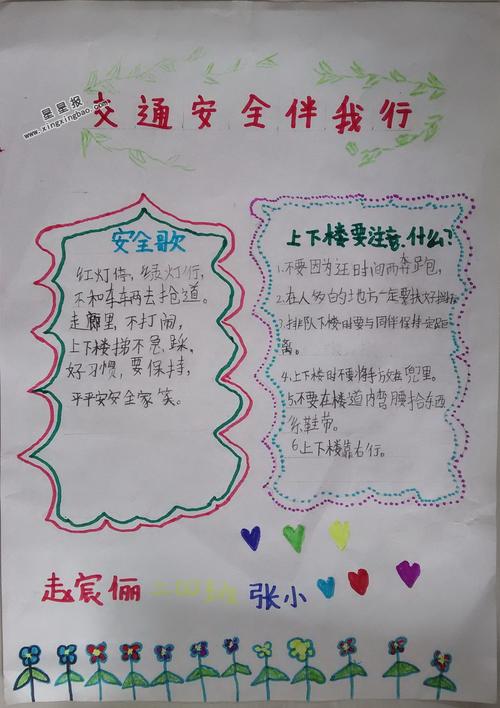 星星报
www.xingxingbao.com
交通安全伴我行
安全歌
红灯停，绿灯行，
不和车车两去抢道。
走廊里，不打闹，
上下楼梯不急踩，
好习惯，要保持，
平平安安全家笑。
上下楼要注意什么？
1.不要因为汪时间而奔跑，
2.在人多的地方一定要扶好
3.排队下楼时要与同伴保持一定距
离。
4.上下楼时不要将手放在兜里。
5.不要在楼道内弯腰拾东西
系鞋带。
6上下楼靠右行。
赵宸俪
张小